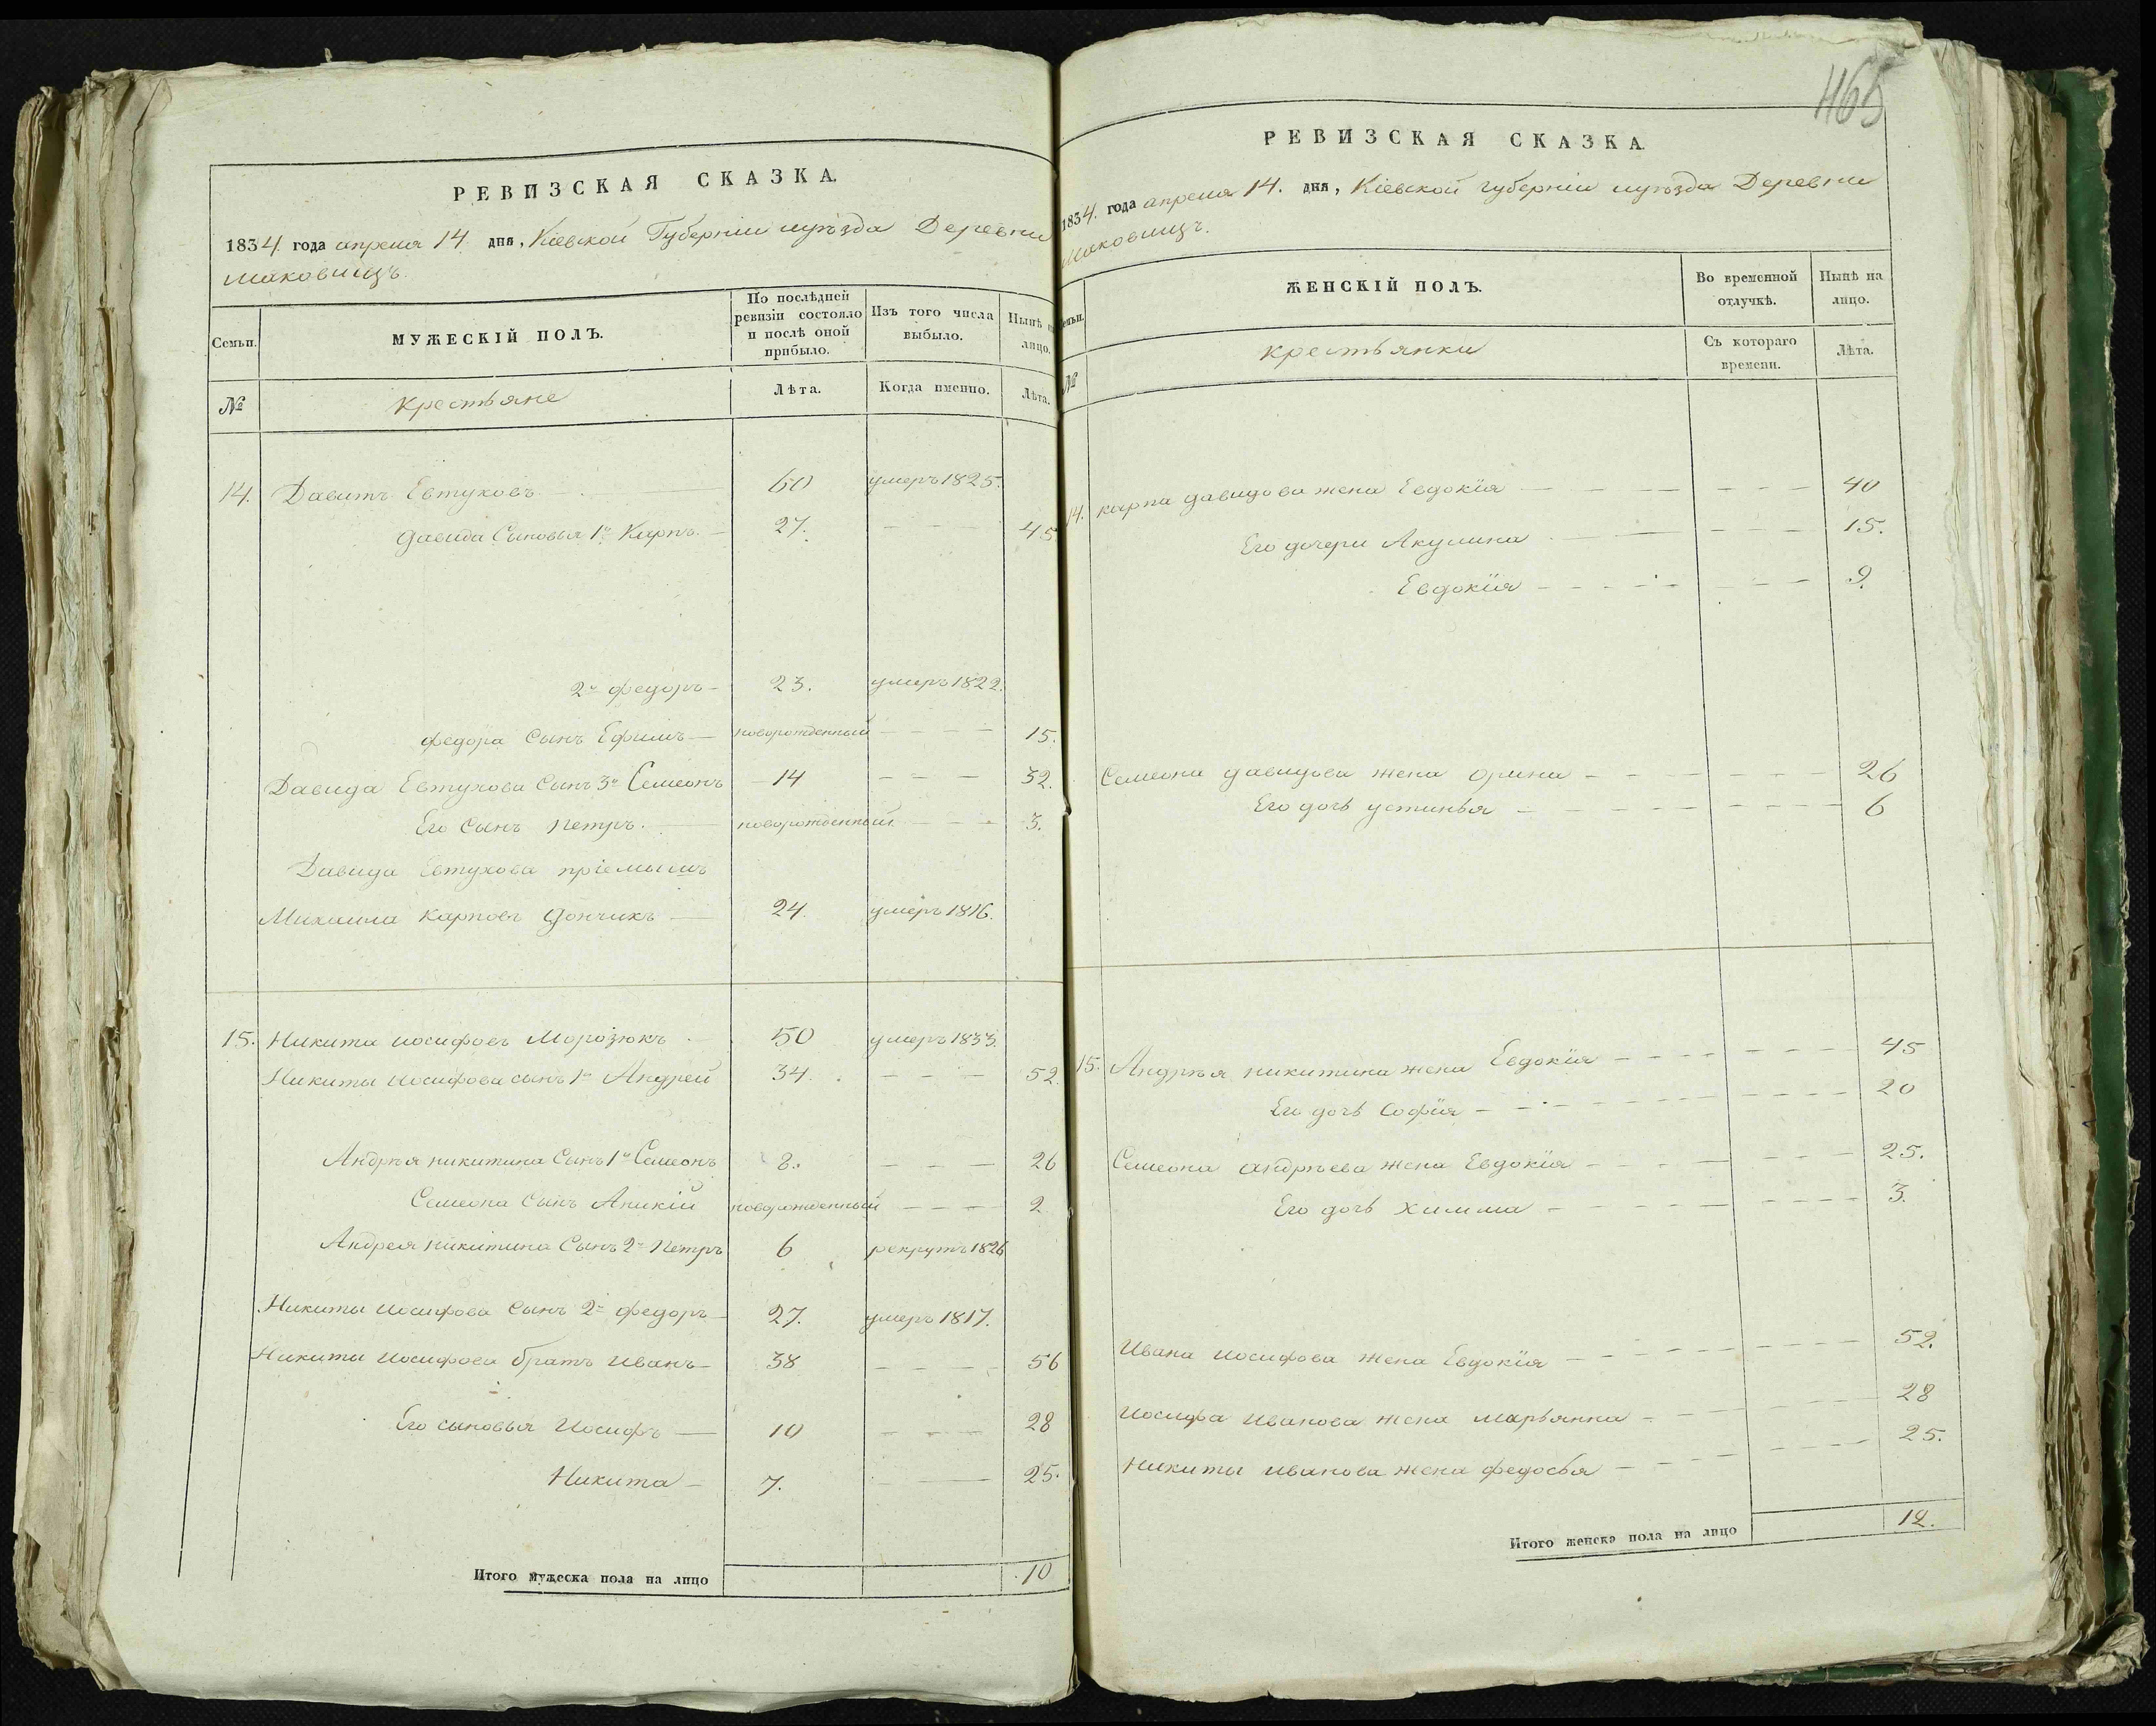 РЕВИЗСКАЯ СКАЗКА.
1834 года апреля 14 дня, Кіевской Губерніи иуѣзда Деревни
маковищъ.
Семьи.
МУЖЕСКІЙ ПОЛЪ.
По послѣдней
ревизіи состояло
и послѣ оной
прибыло.
Изъ того числа
выбыло.
Нынѣ на
лицо.
№
крестьяне
Лѣта.
Когда именно.
Лѣта.
14. Давитъ Евтуховъ 60 умеръ 1825.
Давида Сыновья 1й Карпъ. 27. 45
2й федоръ 23. умеръ 1822.
федора Сынъ Ефимъ новорожденный 15.
Давида Евтухова Сынъ 3й Семеонъ 14 32.
Его Сынъ Петръ. новорожденный 3.
Давида Евтухова пріемышъ
Михаила Карповъ Дончикъ 24. умеръ 1816.
15. Никита иосифовъ Морозюкъ 50 умеръ 1833.
Никиты Иосифова сынъ 1й Андрей 34. 52.
Андрѣя никитина Сынъ 1й Семеонъ 8. 26
Семеона Сынъ Аникій новорожденный 2
Андрея никитина Сынъ 2й Петръ 6 рекрутъ 1826
Никиты Иосифова Сынъ 2й федоръ 27. умеръ 1817.
Никиты Иосифова братъ иванъ 38 56
Его сыновья Иосифъ 10 28
Никита 7. 25.
Итого мужеска пола на лицо 10
465
РЕВИЗСКАЯ СКАЗКА.
1834. года апреля 14. дня, Кіевской губерніи иуѣзда Деревни
маковищъ.
Семьи.
ЖЕНСКІЙ ПОЛЪ.
Во временной
отлучкѣ.
Нынѣ на
лицо.
№
крестьянки
Съ котораго
времени.
Лѣта.
14. карпа давидова жена Евдокія 40
Его дочери Акулина 15.
Евдокія 9.
Семиона давидова жена орина 26
Его дочь устинья 6
15. Андрѣя никитина жена Евдокія 45
Его дочь Софія 20
Семеона андрѣева жена Евдокія 25.
Его дочь химма 3.
Ивана иосифова жена Евдокія 52.
Иосифа иванова жена марьянна 28
Никиты иванова жена федосья 25.
Итого женска пола на лицо 12.